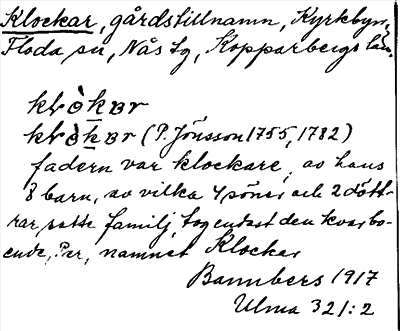 Klockar, gårdstillnamn, Kyrkbyn,
Floda sn, Nås tg, Kopparbergs län.
klòkar
klòkar (P. Jönsson 1755, 1782)
fadern var klockare, av hans
8 barn, av vilka 4 söner och 2 dött-
rar satte familj, tog endast den kvarbo-
ende, Per, namnet Klockar
Bannbers 1917
Ulma 321:2